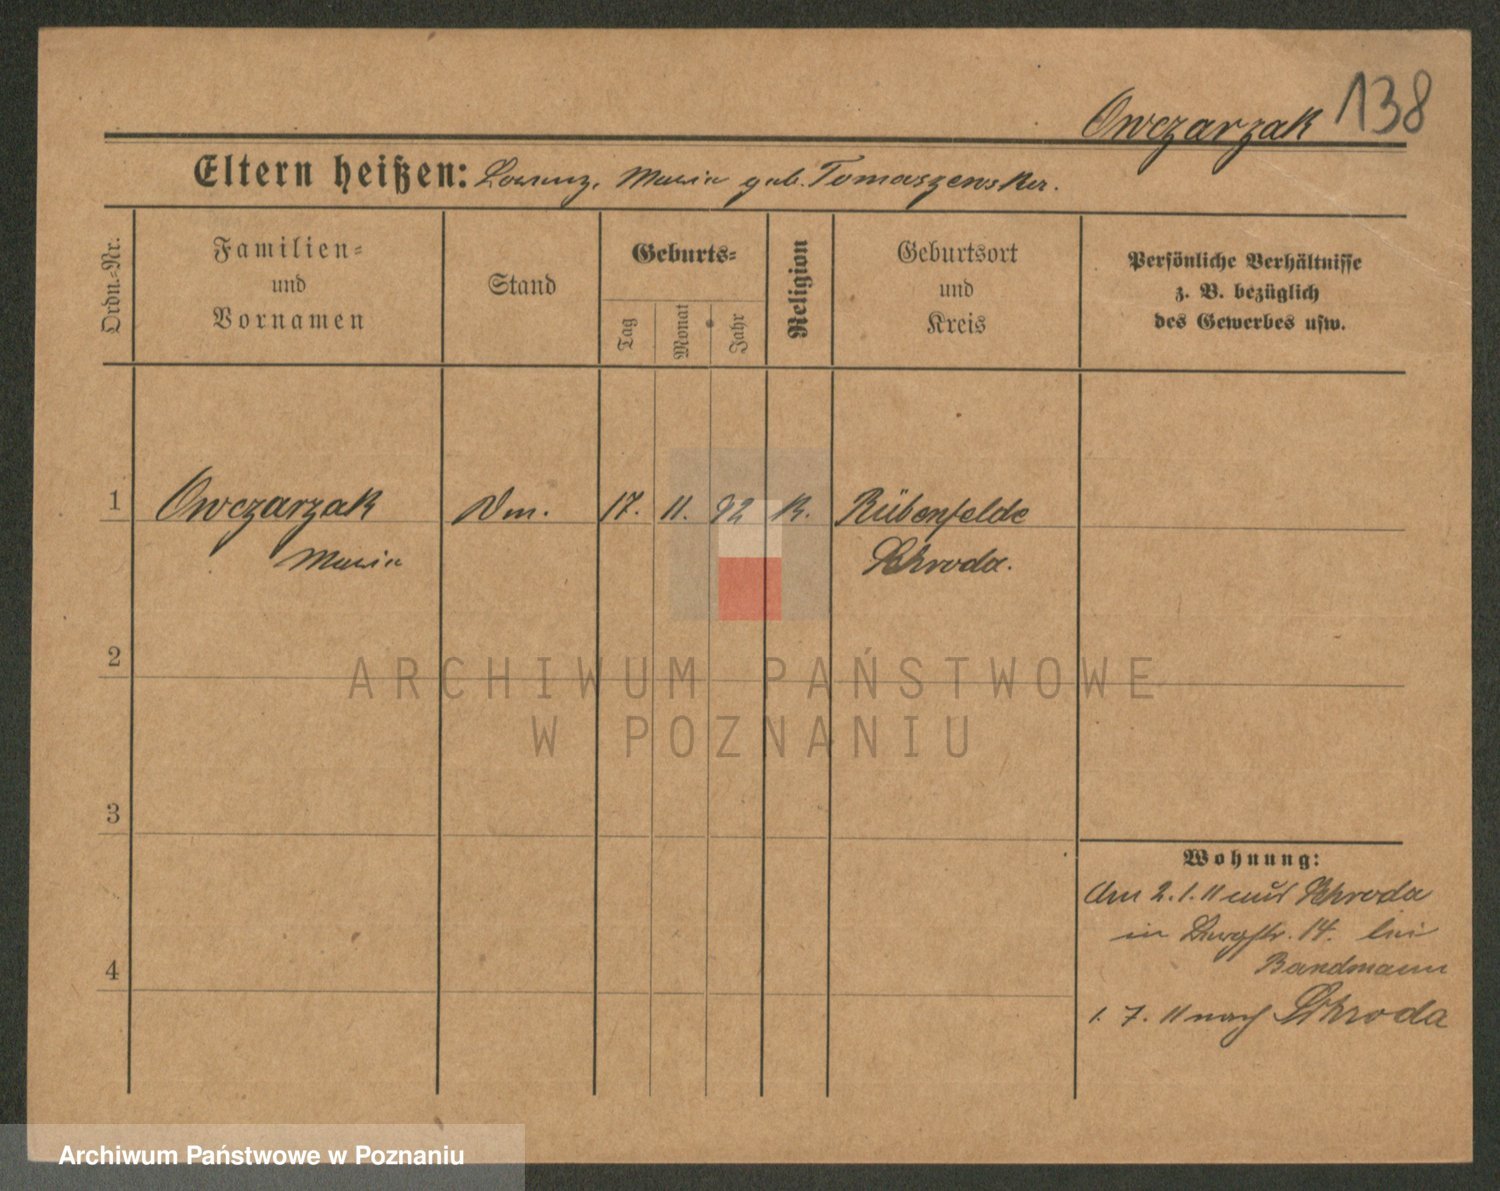 Owczarzak 138
Eltern heißen: Lorenz, Maria geb. Tomaszewska.
Ordn.-Nr.
Familien-
und
Vornamen
Stand
Geburts-
Tag
Monat
Jahr
Religion
Geburtsort
und
Kreis
Persönliche Verhältnisse
z. B. bezüglich
des Gewerbes usw.
1 Owczarzak 17. 11. 92 k. Rübenfelde
Maria Schroda.
2
ARCHIWUM PAŃSTWOWE
W POZNANIU
3
Wohnung:
Am 2.1.11 aus Schroda
in 14. bei
Bandmann
4
1. 7. 11 nach Schroda
Archiwum Państwowe w Poznaniu